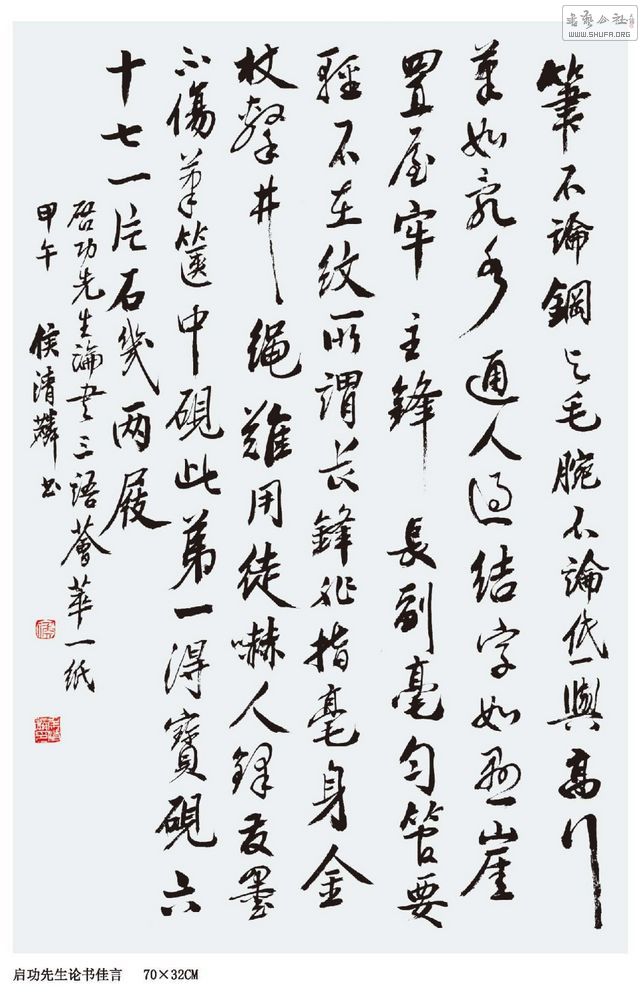 書藝公社
WWW.SHUFA.ORG
筆不論鋼与毛腕不論低與高行
筆如乱水通人過结字如悬崖
置屋牢主鋒長副毫匀管要
輕不在紋所謂长鋒非指毫身金
杖繫井绳難用徒嚇人鋒發墨
不傷筆篋中硯此第一得寶硯六
十七一片石幾两屐
啟功先生論書三語薈萃一紙
甲午 侯清麟书
启功先生论书佳言 70×32CM